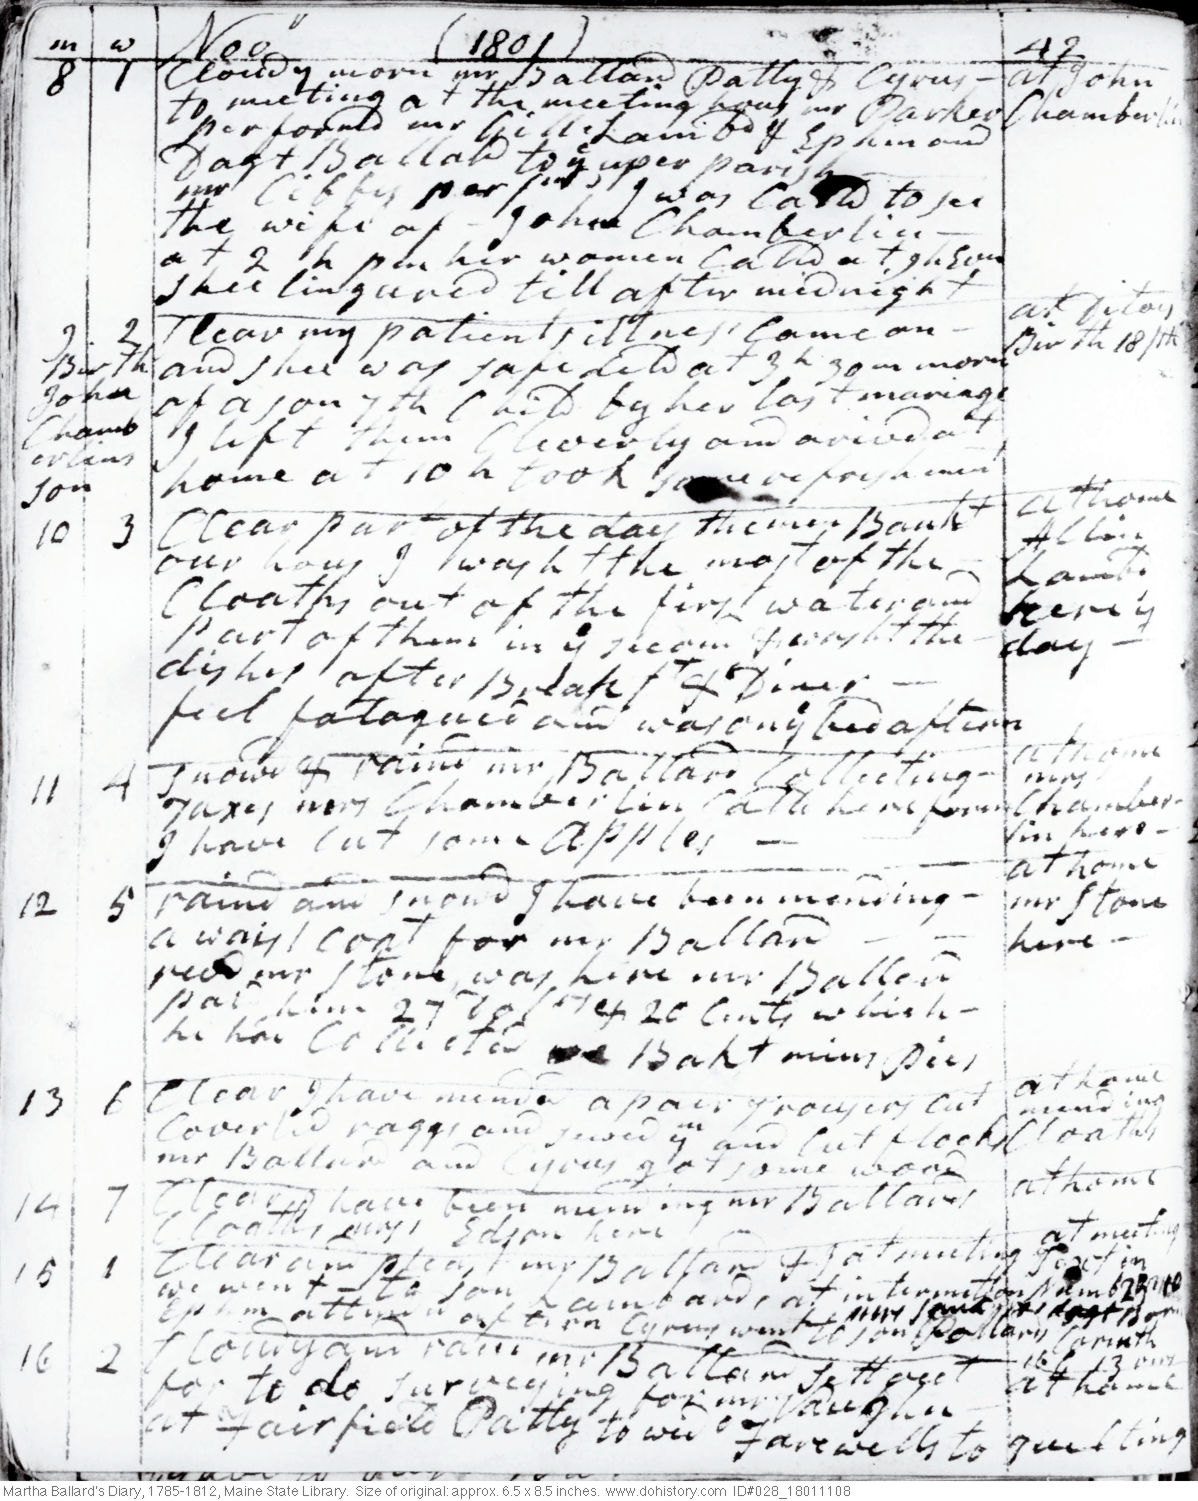 m w Nov (1801) 42
8 1 Cloudy morn mr Ballard Patty & Cyrus - at John
to meeting at the meeting hous mr Parker Chamberlin
performd mr Gill Lambd & Ephm and
Dagt Ballard to ÿ uper parish
mr Cibby per I was Calld to see
the wife of John Chamberlin -
at 2 h pm her women Calld at 9 h Evn
Shee lingured till after midnight
9 2 Clear my patients illness Came on - at Ditoes
Birth and shee was safe deld at 3 h 30 m morn Birth 18th
John of a son 7th Child by her last mariage
Chamb I left them Cleverly and arivd at
erlins home at 10 h took some refreshment
son
10 3 Clear part of the day the men Bankt at home
our hous I washt the most of the Allin
Cloaths out of the first water and Lambd
part of them in ÿ second & washt the here ÿ
dishes after Breakft & Diner - day -
feel fatagued and was on ÿ bed aftern
11 4 Snowd & raind mr Ballard Collecting - at home
Taxes mrs Chamberlin Calld here forn mrs Chamber-
I have Cut some Apples - lin here -
12 5 raind and snowd I have been mending - at home
a waist coat for mr Ballard - - mr Stone
mr Stone was here mr Ballard here -
paid him 27 Dolrs & 20 Cents which -
he had Collected we Bakt mins pies
13 6 Clear I have mended a pair Trousers cut at home
Coverlid raggs and sewed ÿm and Cut flocks mending
mr Ballard and Cyrus got some wood Cloaths
14 7 Clear I have been mending mr Ballards at home
Cloaths mrs Edson here -
15 1 Clear and pleast mr Ballard & I at meeting at meeting
we went to son Lambards at intermition
Ephm attend aftern Cyrus went to son Pollards
16 2 Cloudy and rain mr Ballard sett out at home
for to do surveying for mr Vaughn -
at Fairfield Patty to wido Farewells to quilting
Martha Ballard's Diary, 1785-1812, Maine State Library. Size of original: approx. 6.5 x 8.5 inches. www.dohistory.com ID#028_18011108